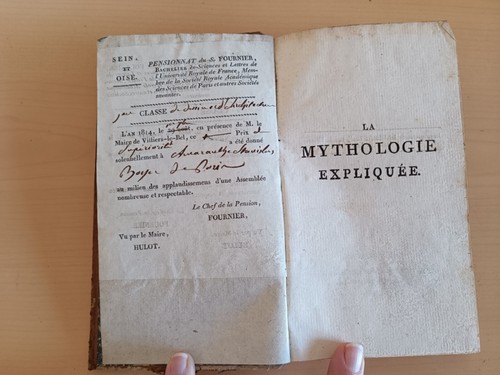 SEIN.
ET
OISE.
PENSIONNAT du S. FOURNIER,
BACHELIER ès-Sciences et Lettres de
l'Université Royale de France, Mem-
bre de la Société Royale Académique
des Sciences de Paris et autres Sociétés
savantes.
CLASSE de
L'AN 1814, le en présence de M. le
Maire de Villiers-le-Bel, ce Prix
a été donné
solennellement à
de
au milieu des applaudissemens d'une Assemblée
nombreuse et respectable.
Le Chef de la Pension,
FOURNIER.
Vu par le Maire,
HULOT.
LA
MYTHOLOGIE
EXPLIQUÉE.